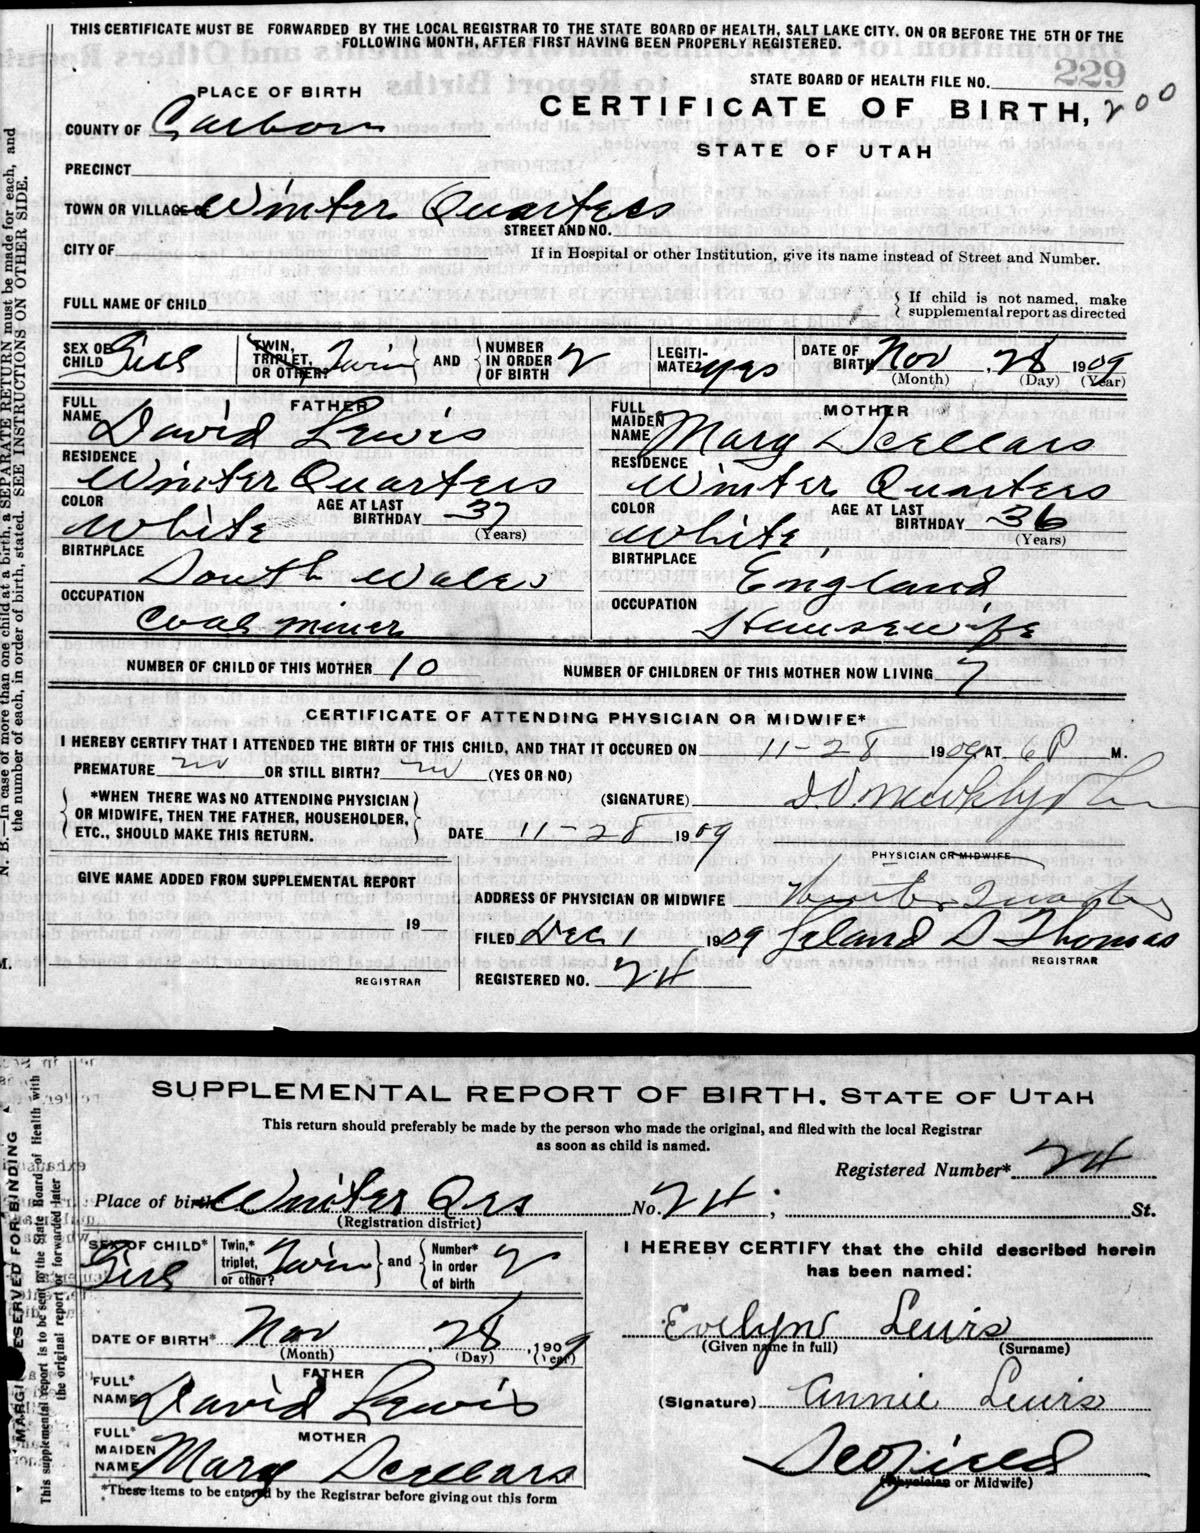 THIS CERTIFICATE MUST BE FORWARDED BY THE LOCAL REGISTRAR TO THE STATE BOARD OF HEALTH, SALT LAKE CITY, ON OR BEFORE THE 5TH OF THE
FOLLOWING MONTH, AFTER FIRST HAVING BEEN PROPERLY REGISTERED.
229
STATE BOARD OF HEALTH FILE NO.
PLACE OF BIRTH
CERTIFICATE OF BIRTH, 200
COUNTY OF Carbon
STATE OF UTAH
PRECINCT
TOWN OR VILLAGE OF Winter Quarters
STREET AND NO.
CITY OF
If in Hospital or other Institution, give its name instead of Street and Number.
FULL NAME OF CHILD
If child is not named, make
supplemental report as directed
SEX OF CHILD Girl TWIN, TRIPLET, OR OTHER? Twin AND NUMBER IN ORDER OF BIRTH 2 LEGITIMATE? yes DATE OF BIRTH Nov, 28 1909
(Month) (Day) (Year)
FATHER MOTHER
FULL NAME David Lewis FULL MAIDEN NAME Mary Scellars
RESIDENCE Winter Quarters RESIDENCE Winter Quarters
COLOR White AGE AT LAST BIRTHDAY 37 (Years) COLOR White AGE AT LAST BIRTHDAY 36 (Years)
BIRTHPLACE South Wales BIRTHPLACE England
OCCUPATION Coal miner OCCUPATION Housewife
NUMBER OF CHILD OF THIS MOTHER 10 NUMBER OF CHILDREN OF THIS MOTHER NOW LIVING 7
CERTIFICATE OF ATTENDING PHYSICIAN OR MIDWIFE*
I HEREBY CERTIFY THAT I ATTENDED THE BIRTH OF THIS CHILD, AND THAT IT OCCURED ON 11-28 1909 AT 6P M.
PREMATURE no OR STILL BIRTH? no (YES OR NO)
*WHEN THERE WAS NO ATTENDING PHYSICIAN
OR MIDWIFE, THEN THE FATHER, HOUSEHOLDER,
ETC., SHOULD MAKE THIS RETURN.
(SIGNATURE)
DATE 11-28 1909
PHYSICIAN OR MIDWIFE
GIVE NAME ADDED FROM SUPPLEMENTAL REPORT
19
REGISTRAR
ADDRESS OF PHYSICIAN OR MIDWIFE Winter Quarters
FILED Dec 1 1909 Leland D Thomas
REGISTRAR
REGISTERED NO. 24
N. B.—In case of more than one child at a birth, a SEPARATE RETURN must be made for each, and
the number of each, in order of birth, stated. SEE INSTRUCTIONS ON OTHER SIDE.
SUPPLEMENTAL REPORT OF BIRTH, STATE OF UTAH
This return should preferably be made by the person who made the original, and filed with the local Registrar
as soon as child is named.
Registered Number* 24
Place of birth Winter Qrs No. 24; St.
(Registration district)
SEX OF CHILD* Girl Twin,* triplet, or other? Twin and Number* in order of birth 2
I HEREBY CERTIFY that the child described herein
has been named:
Evelyn Lewis
(Given name in full) (Surname)
DATE OF BIRTH* Nov, 28, 1909
(Month) (Day) (Year)
FATHER
FULL* NAME David Lewis
(Signature) Annie Lewis
MOTHER
FULL* MAIDEN NAME Mary Scellars
Scofield
(Physician or Midwife)
*These items to be entered by the Registrar before giving out this form
MARGIN RESERVED FOR BINDING
This supplemental report is to be sent to the State Board of Health with
the original report or forwarded later